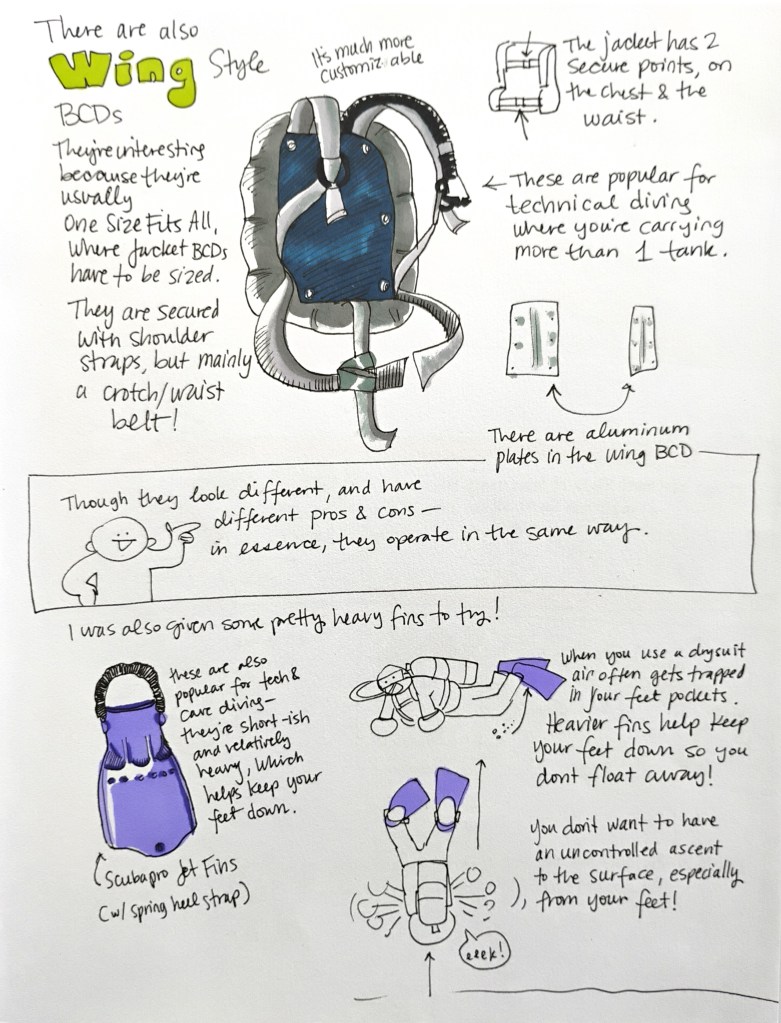 There are also
Wing Style
BCDs
They're interesting
because they're
usually
One Size Fits All,
where Jacket BCDs
have to be sized.
They are secured
with shoulder
straps, but mainly
a crotch/waist
belt!
It's much more
customizable
The jacket has 2
secure points, on
the chest & the
waist.
These are popular for
technical diving
where you're carrying
more than 1 tank.
There are aluminum
plates in the wing BCD
Though they look different, and have
different pros & cons —
in essence, they operate in the same way.
I was also given some pretty heavy fins to try!
these are also
popular for tech &
cave diving —
they're short-ish
and relatively
heavy, which
helps keep your
feet down.
Scubapro Jet Fins
(w/ spring heel strap)
when you use a drysuit
air often gets trapped
in your feet pockets.
Heavier fins help keep
your feet down so you
dont float away!
You don't want to have
an uncontrolled ascent
to the surface, especially
from your feet!
?
eeek!